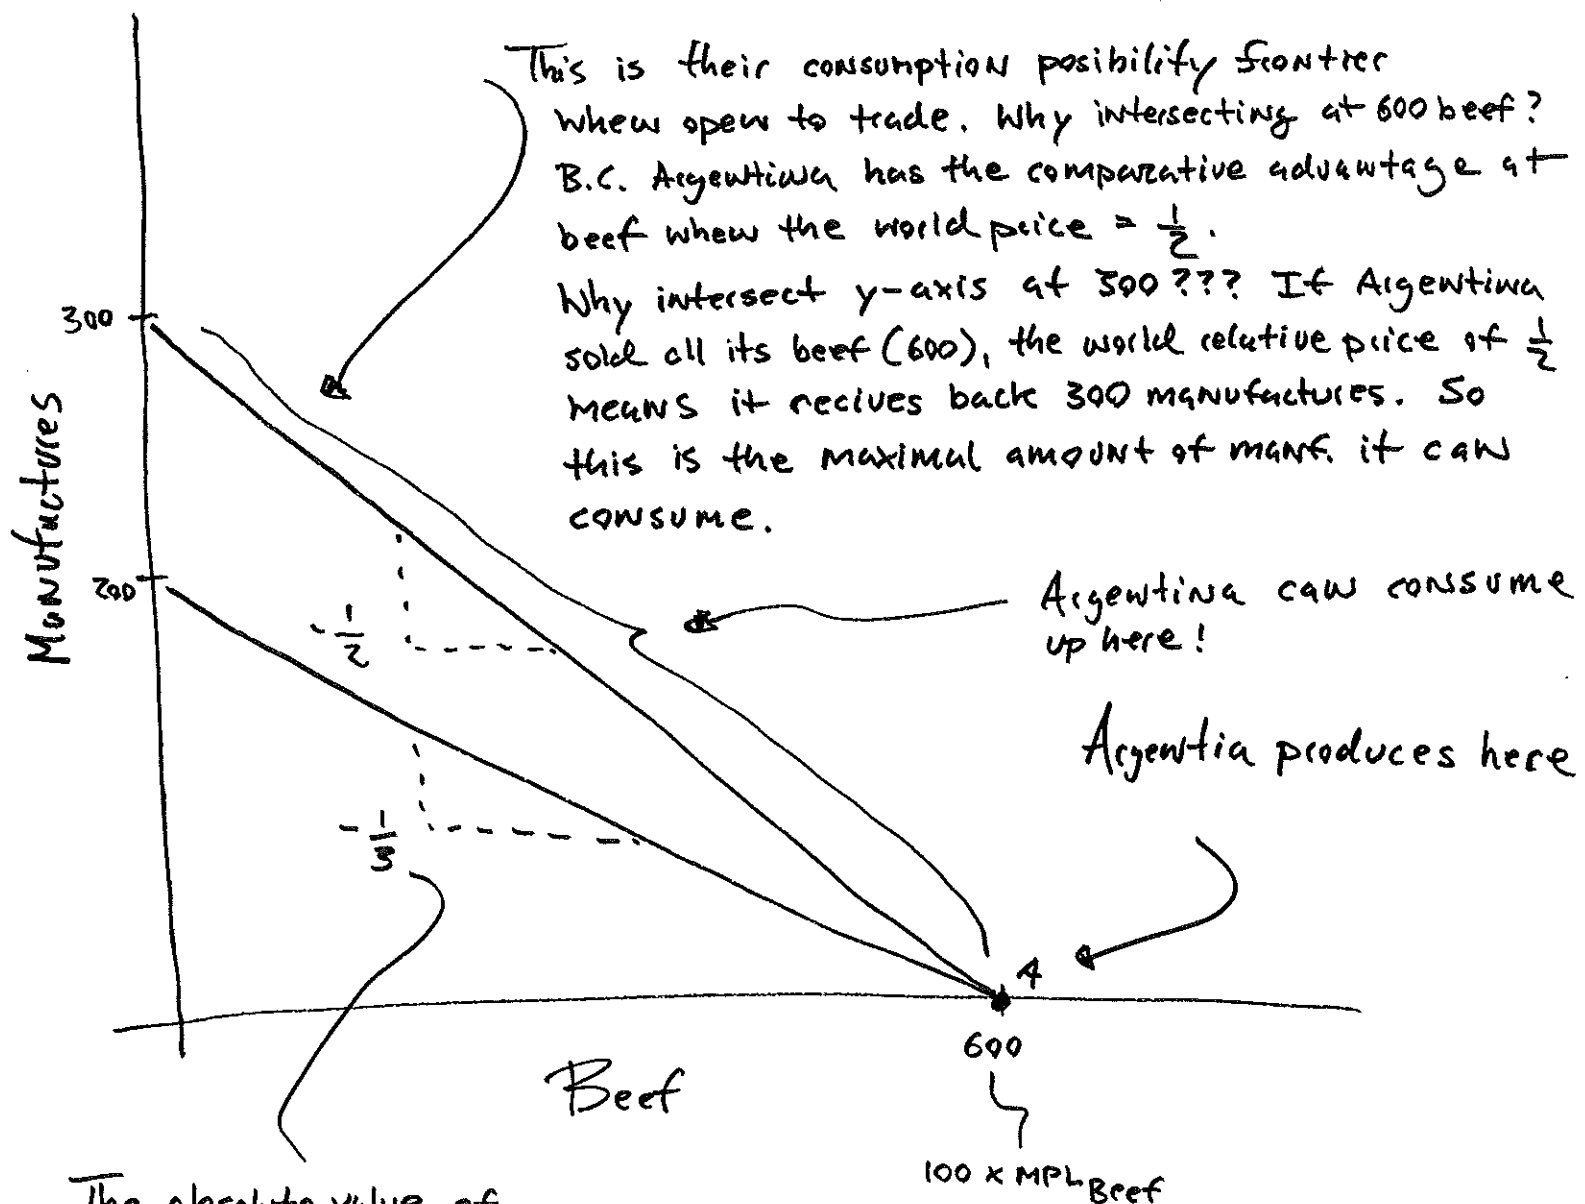 This is their consumption posibility frontier
when open to trade. Why intersecting at 600 beef?
B.C. Argentina has the comparative advantage at
beef when the world price = 1/2.
Why intersect y-axis at 300??? If Argentina
sold all its beef (600), the world relative price of 1/2
means it recives back 300 manufactures. So
this is the maximal amount of manf. it can
consume.
300
Manufactures
200
-1/2
Argentina can consume
up here!
Argentia produces here
-1/3
A
600
Beef
100 x MPL Beef
The absolute value of